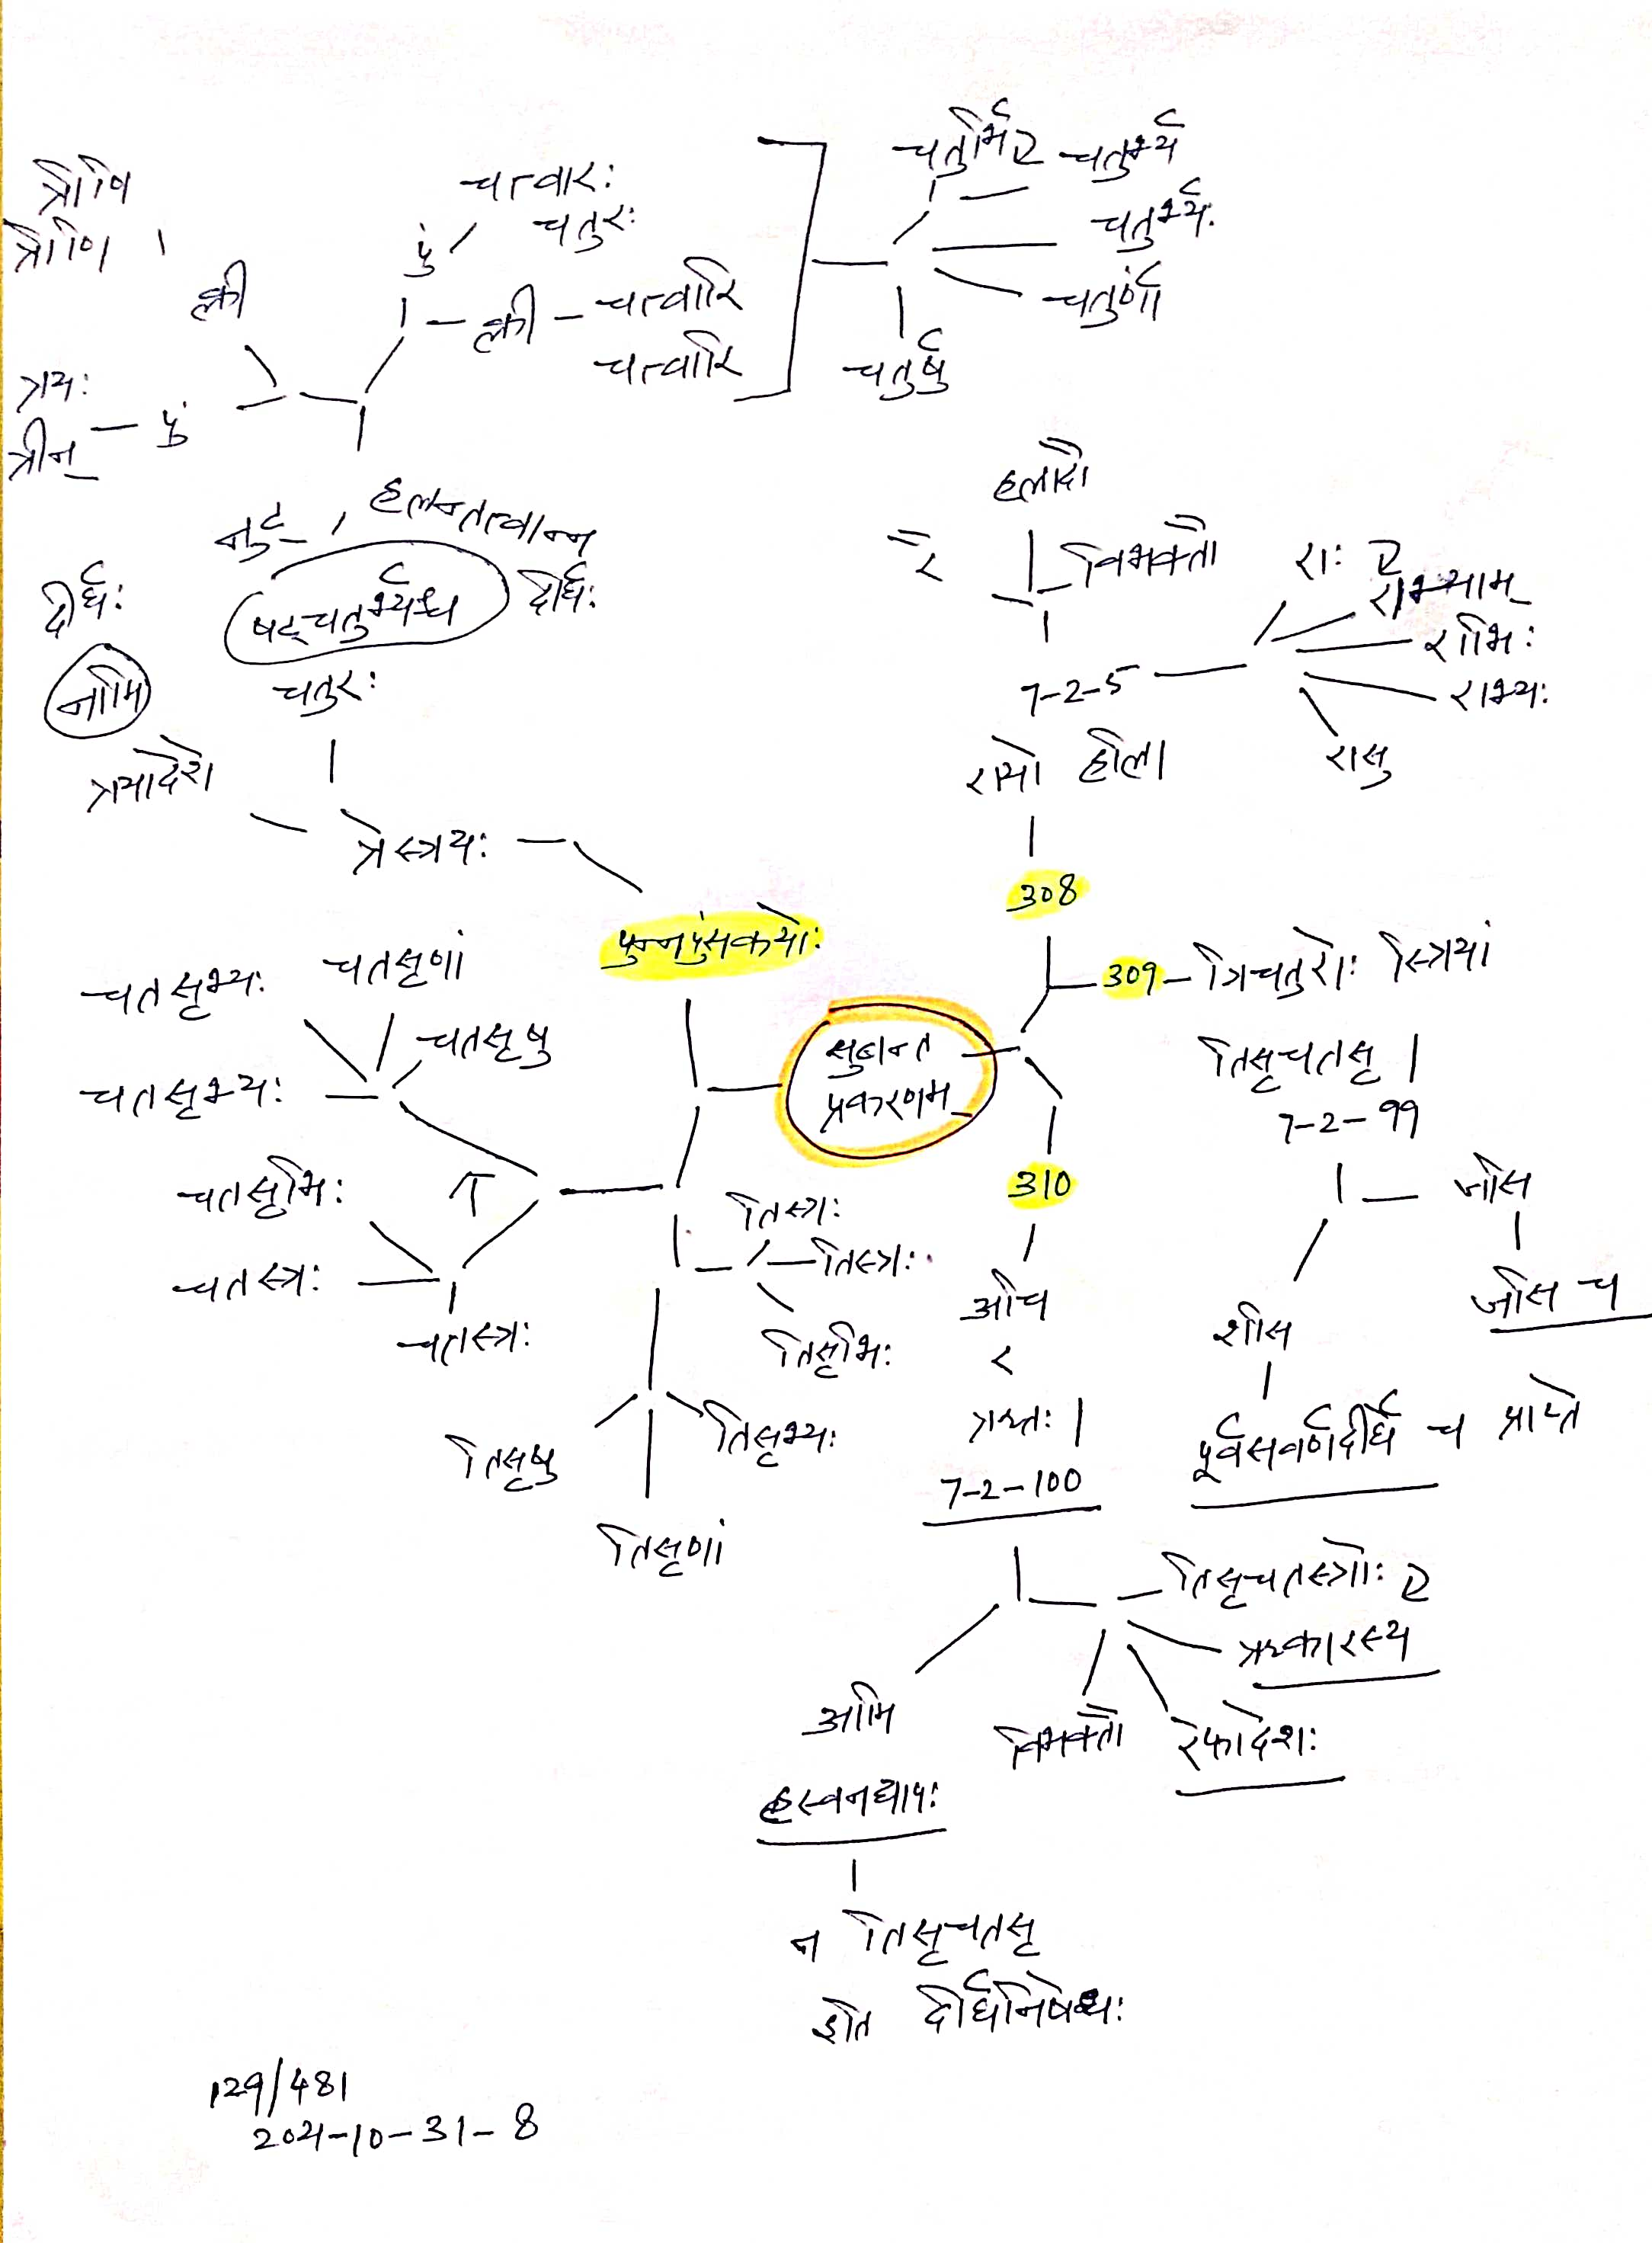 चतुर्भिः २ चतुर्भ्य
चतुर्भ्यः
चतुर्णां
चतुर्षु
त्रीणि
त्रीणि
क्ली
चत्वारः
पुं
चतुरः
क्ली
चत्वारि
चत्वारि
त्रयः
त्रीन्
पुं
नुट्, हलन्तत्वान्न
दीर्घः
षट्चतुर्भ्यश्च
दीर्घः
नामि
चतुरः
त्रयादेश
त्रेस्त्रयः
हलादौ
विभक्तौ
राः २
राभ्याम्
राभिः
राभ्यः
रासु
7-2-5
रायो हलि।
308
309
त्रिचतुरोः स्त्रियां
तिसृचतसृ।
7-2-99
जसि
जसि च
शसि
पूर्वसवर्णदीर्घे च प्राप्ते
पुन्नपुंसकयोः
सुबन्त
प्रकरणम्
चतसृभ्यः
चतसृणां
चतसृषु
चतसृभ्यः
चतसृभिः
चतस्त्रः
चतस्त्रः
तिस्त्रः
तिस्त्रः
तिसृभिः
तिसृभ्यः
तिसृषु
तिसृणां
310
अचि
र
ऋतः।
7-2-100
तिसृचतस्त्रोः २
ऋकारस्य
रेफादेशः
विभक्तौ
आमि
ह्रस्वनद्यापः
न तिसृचतसृ
इति दीर्घनिषेधः
129/481
2021-10-31-8